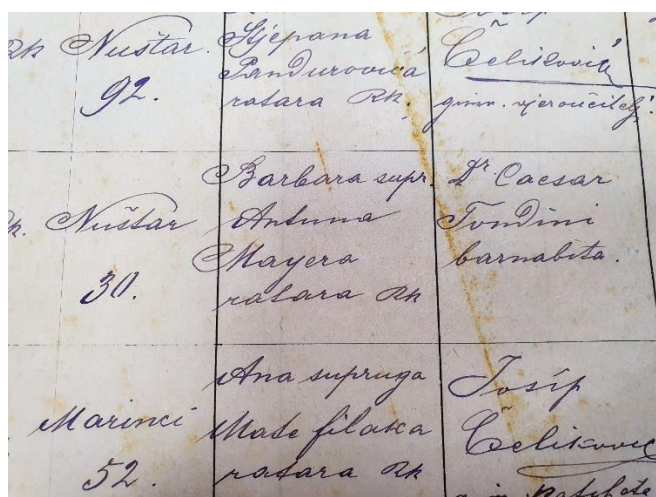 Rk Nuštar.
92.
Stjepana
Pandurovića
ratara Rk.
Josip
Čeliković
gimn. vjeroučitelj.
Nuštar
30.
Barbara supr.
Antuna
Mayera
ratara Rk
Dr Caesar
Tondini
barnabita.
Marinci
52.
Ana supruga
Mate filaka
ratara Rk
Josip
Čeliković